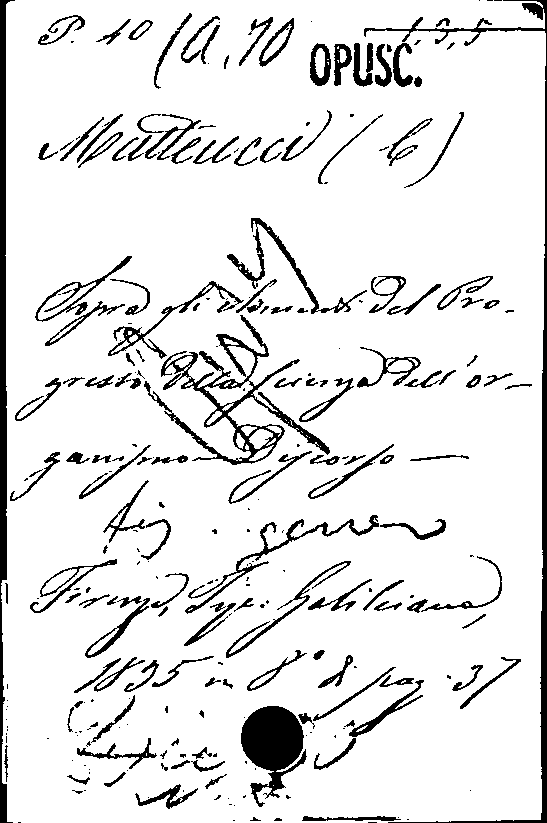 P. 40 (A. 70 1, 3, 5
OPUSC.
Matteucci (C)
Sopra gli elementi del Pro-
gresso della scienza dell'or-
ganismo - Discorso -
Firenze, Tip: Galileiana,
1835 in 8º di pag. 37